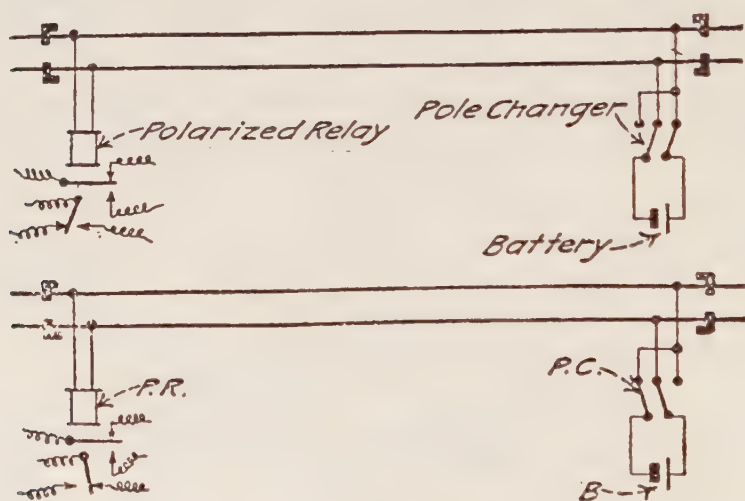 Polarized Relay
Pole Changer
Battery
P.R.
P.C.
B